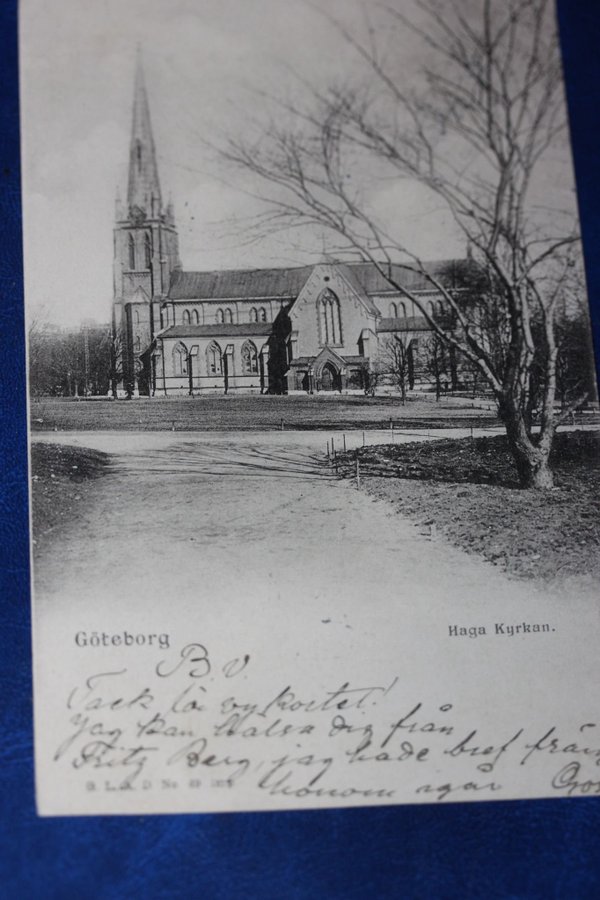 Göteborg
Haga Kyrkan.
B. V.
Tack för vykortet!
Jag kan hälsa dig från
Fritz Berg, jag hade bref från
honom igår